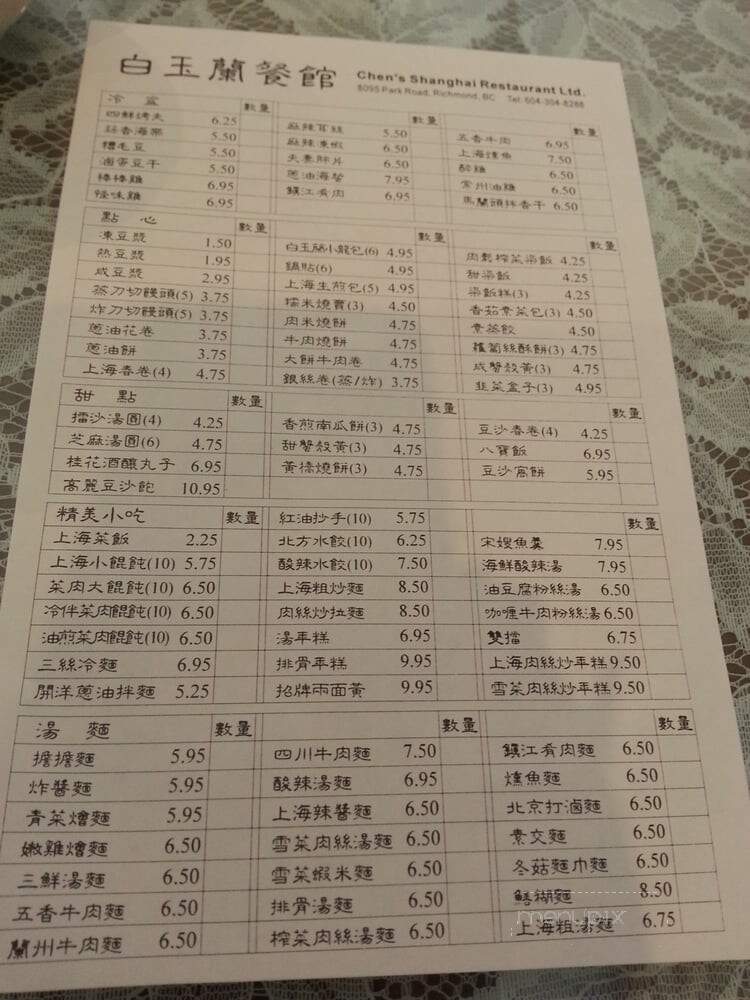 白玉蘭餐館 Chen's Shanghai Restaurant Ltd.
8095 Park Road, Richmond, BC Tel: 604-304-8288
冷盆 數量 數量 數量
四鮮烤夫 6.25 麻辣耳絲 5.50 五香牛肉 6.95
蒜香海帶 5.50 麻辣 6.50 上海燻魚 7.50
糟毛豆 5.50 夫妻肺片 6.50 醉雞 6.50
滷香豆干 5.50 蔥油海蜇 7.95 常州油雞 6.50
棒棒雞 6.95 鎮江肴肉 6.95 馬蘭頭拌香干 6.50
怪味雞 6.95
點心 數量 數量 數量
凍豆漿 1.50 白玉蘭小籠包(6) 4.95 肉鬆榨菜粢飯 4.25
熱豆漿 1.95 鍋貼(6) 4.95 甜粢飯 4.25
咸豆漿 2.95 上海生煎包(5) 4.95 粢飯糕(3) 4.25
蒸刀切饅頭(5) 3.75 糯米燒賣(3) 4.50 香菇素菜包(3) 4.50
炸刀切饅頭(5) 3.75 肉米燒餅 4.75 素蒸餃 4.50
蔥油花卷 3.75 牛肉燒餅 4.75 蘿蔔絲酥餅(3) 4.75
蔥油餅 3.75 大餅牛肉卷 4.75 咸蟹殼黃(3) 4.75
上海春卷(4) 4.75 銀絲卷(蒸/炸) 3.75 韭菜盒子(3) 4.95
甜點 數量 數量 數量
擂沙湯圓(4) 4.25 香煎南瓜餅(3) 4.75 豆沙春卷(4) 4.25
芝麻湯圓(6) 4.75 甜蟹殼黃(3) 4.75 八寶飯 6.95
桂花酒釀丸子 6.95 黃橋燒餅(3) 4.75 豆沙窩餅 5.95
高麗豆沙飽 10.95
精美小吃 數量 紅油抄手(10) 5.75 數量
上海菜飯 2.25 北方水餃(10) 6.25 宋嫂魚羹 7.95
上海小餛飩(10) 5.75 酸辣水餃(10) 7.50 海鮮酸辣湯 7.95
菜肉大餛飩(10) 6.50 上海粗炒麵 8.50 油豆腐粉絲湯 6.50
冷伴菜肉餛飩(10) 6.50 肉絲炒拉麵 8.50 咖喱牛肉粉絲湯 6.50
油煎菜肉餛飩(10) 6.50 湯年糕 6.95 雙擋 6.75
三絲冷麵 6.95 排骨年糕 9.95 上海肉絲炒年糕 9.50
開洋蔥油拌麵 5.25 招牌兩面黃 9.95 雪菜肉絲炒年糕 9.50
湯麵 數量 數量 數量
擔擔麵 5.95 四川牛肉麵 7.50 鎮江肴肉麵 6.50
炸醬麵 5.95 酸辣湯麵 6.95 燻魚麵 6.50
青菜燴麵 5.95 上海辣醬麵 6.50 北京打滷麵 6.50
嫩雞燴麵 6.50 雪菜肉絲湯麵 6.50 素交麵 6.50
三鮮湯麵 6.50 雪菜蝦米麵 6.50 冬菇麵巾麵 6.50
五香牛肉麵 6.50 排骨湯麵 6.50 鱔糊麵 8.50
蘭州牛肉麵 6.50 榨菜肉絲湯麵 6.50 上海粗湯麵 6.75
menupix